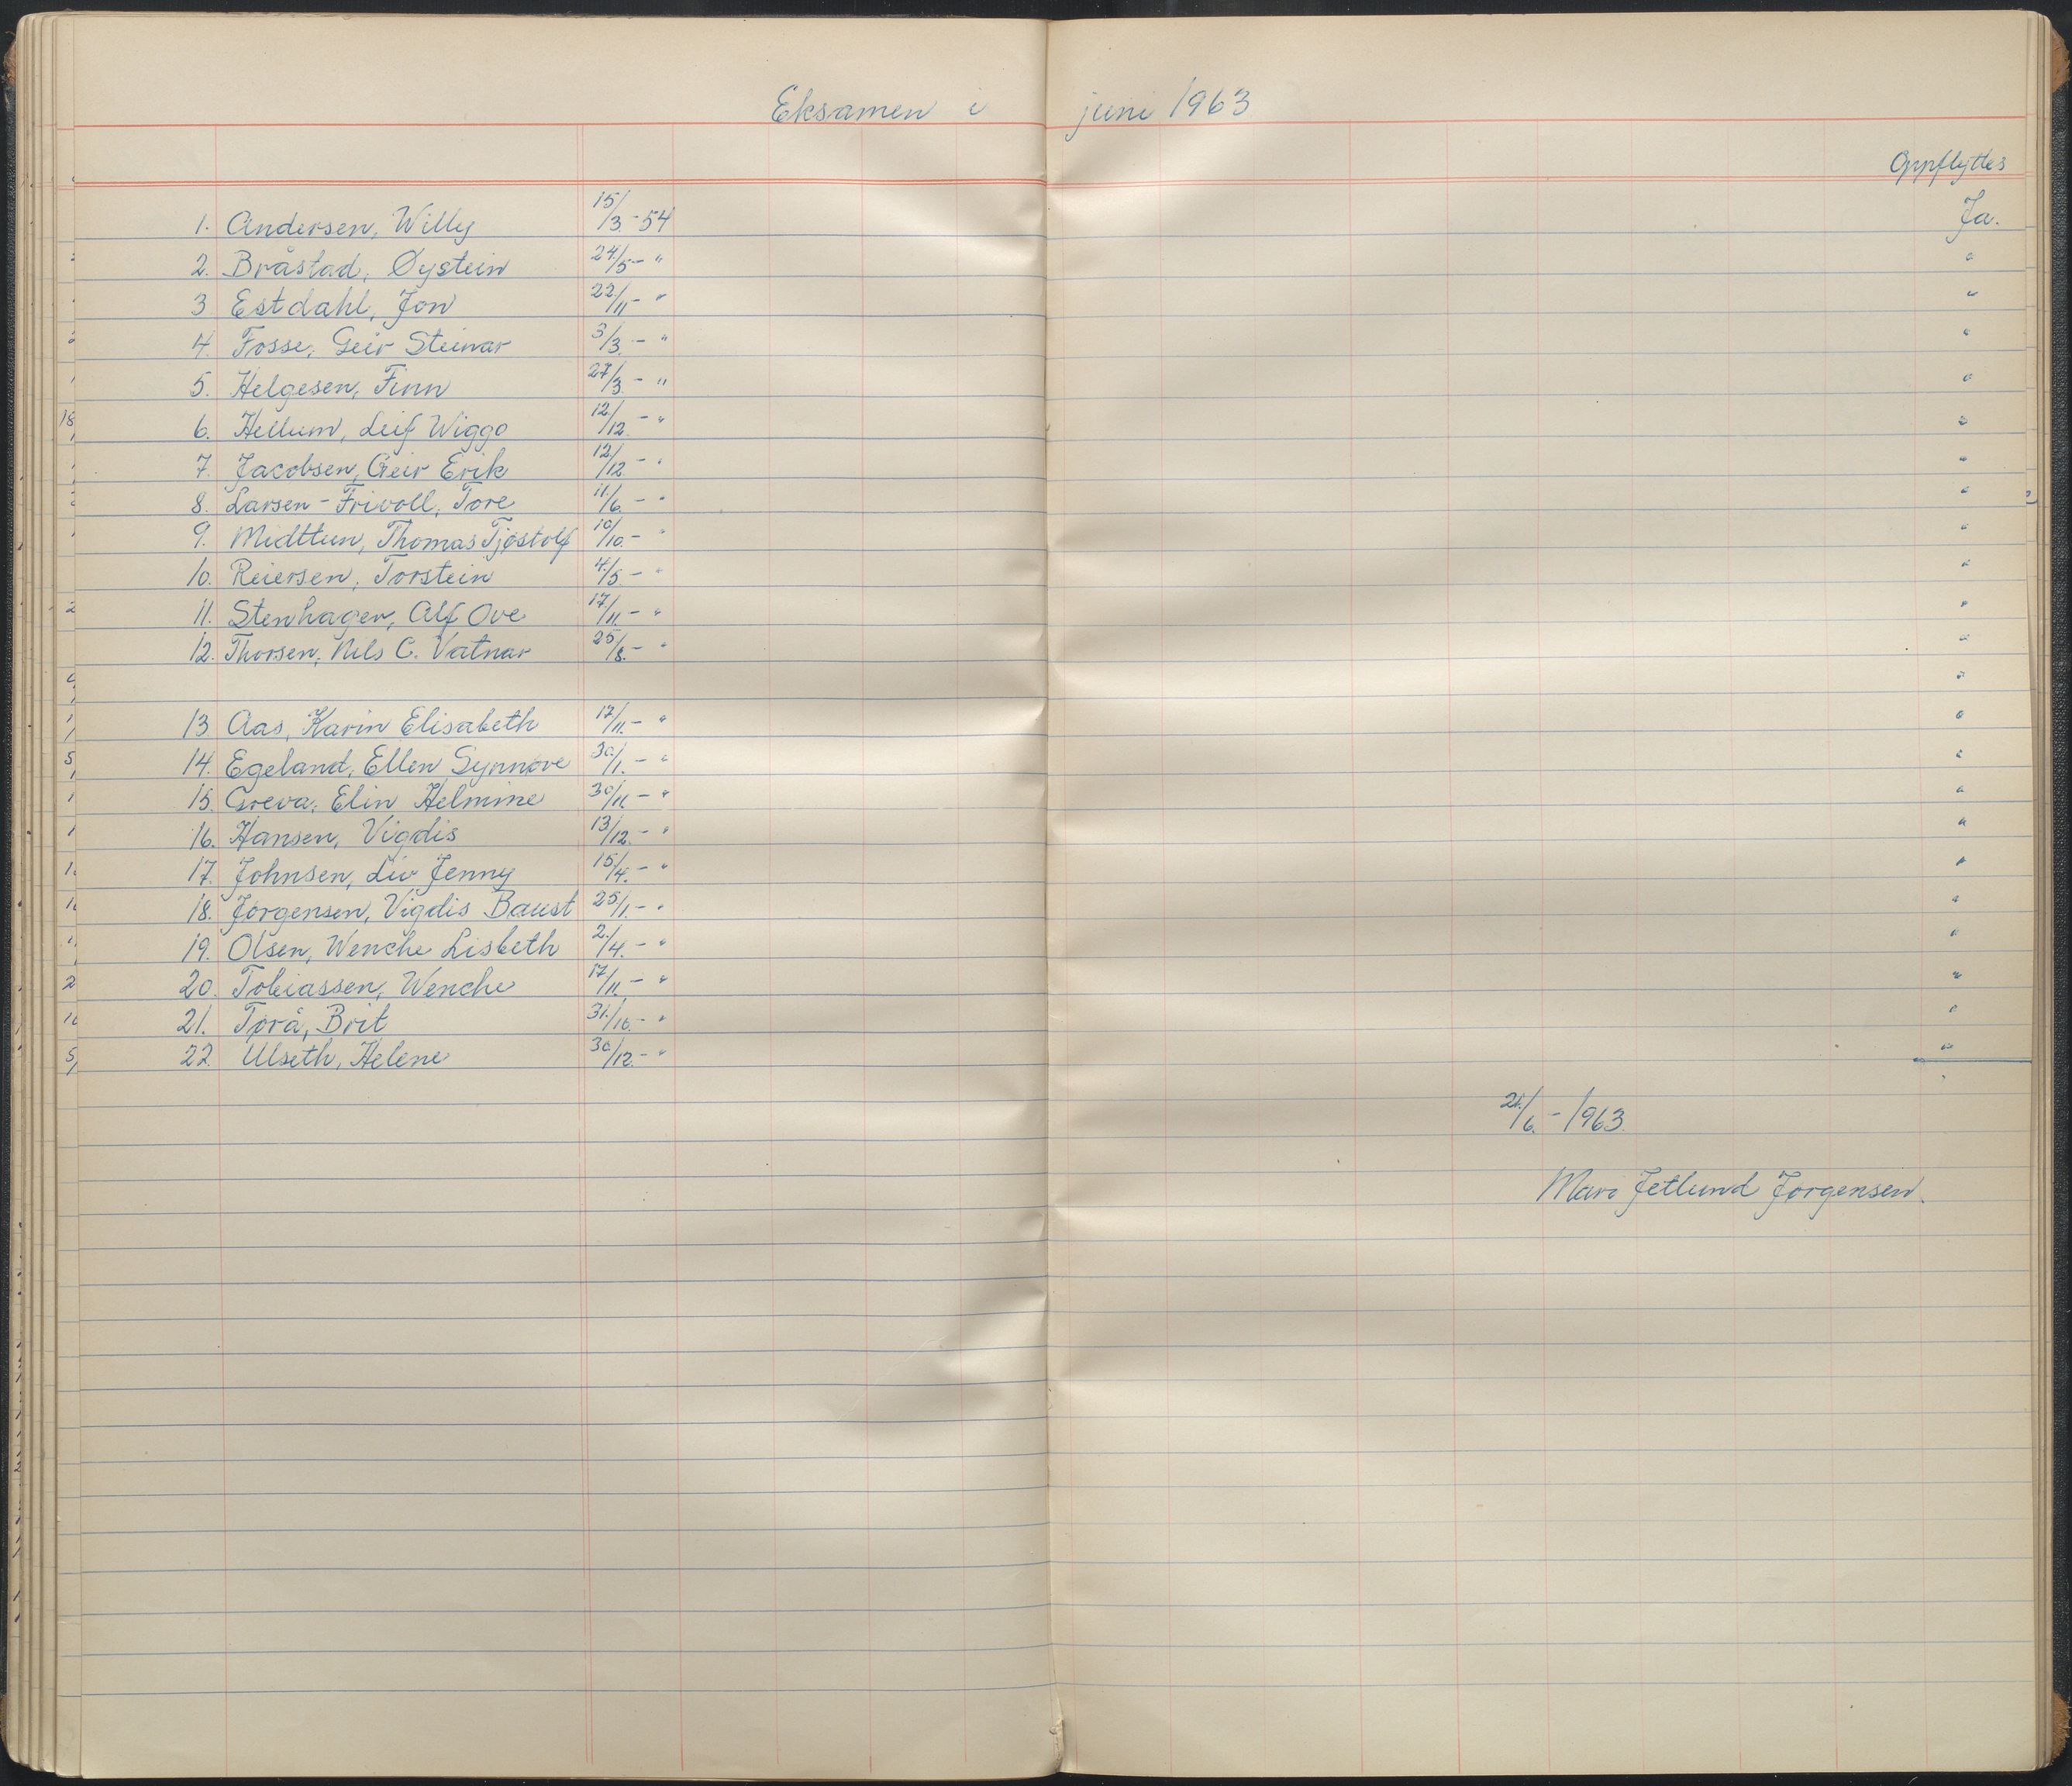 Eksamen i juni 1963
Oppflyttes
1. Andersen, Willy 15/3.-54 Ja.
2. Bråstad, Øystein 24/5- " "
3 Estdahl, Jon 22/11- " "
4. Fosse, Geir Steinar 3/3. - " "
5. Helgesen, Finn 27/3. - " "
6. Hellum, Leif Wiggo 12/12. - " "
7. Jacobsen, Geir Erik 12/12. - " "
8. Larsen-Frivoll, Tore 11/6. - " "
9. Midttun, Thomas Tjøstolf 10/10. - " "
10. Reiersen, Torstein 4/5. - " "
11. Stenhagen, Alf Ove 17/11. - " "
12. Thorsen, Nils C. Vatnar 25/8. - " "
"
13 Aas, Karin Elisabeth 17/11. - " "
14. Egeland, Ellen Synnøve 30/1. - " "
15. Greva, Elin Helmine 30/11. - " "
16. Hansen, Vigdis 13/12. - " "
17. Johnsen, Liv Jenny 15/4. - " "
18. Jørgensen, Vigdis Baust 25/1. - " "
19. Olsen, Wenche Lisbeth 2/4. - " "
20. Tobiassen, Wenche 17/11. - " "
21. Tørå, Brit 31./10. - " "
22. Ulseth, Helene 30/12. - " "
21/6.-1963.
Mari Jetlund Jørgensen.